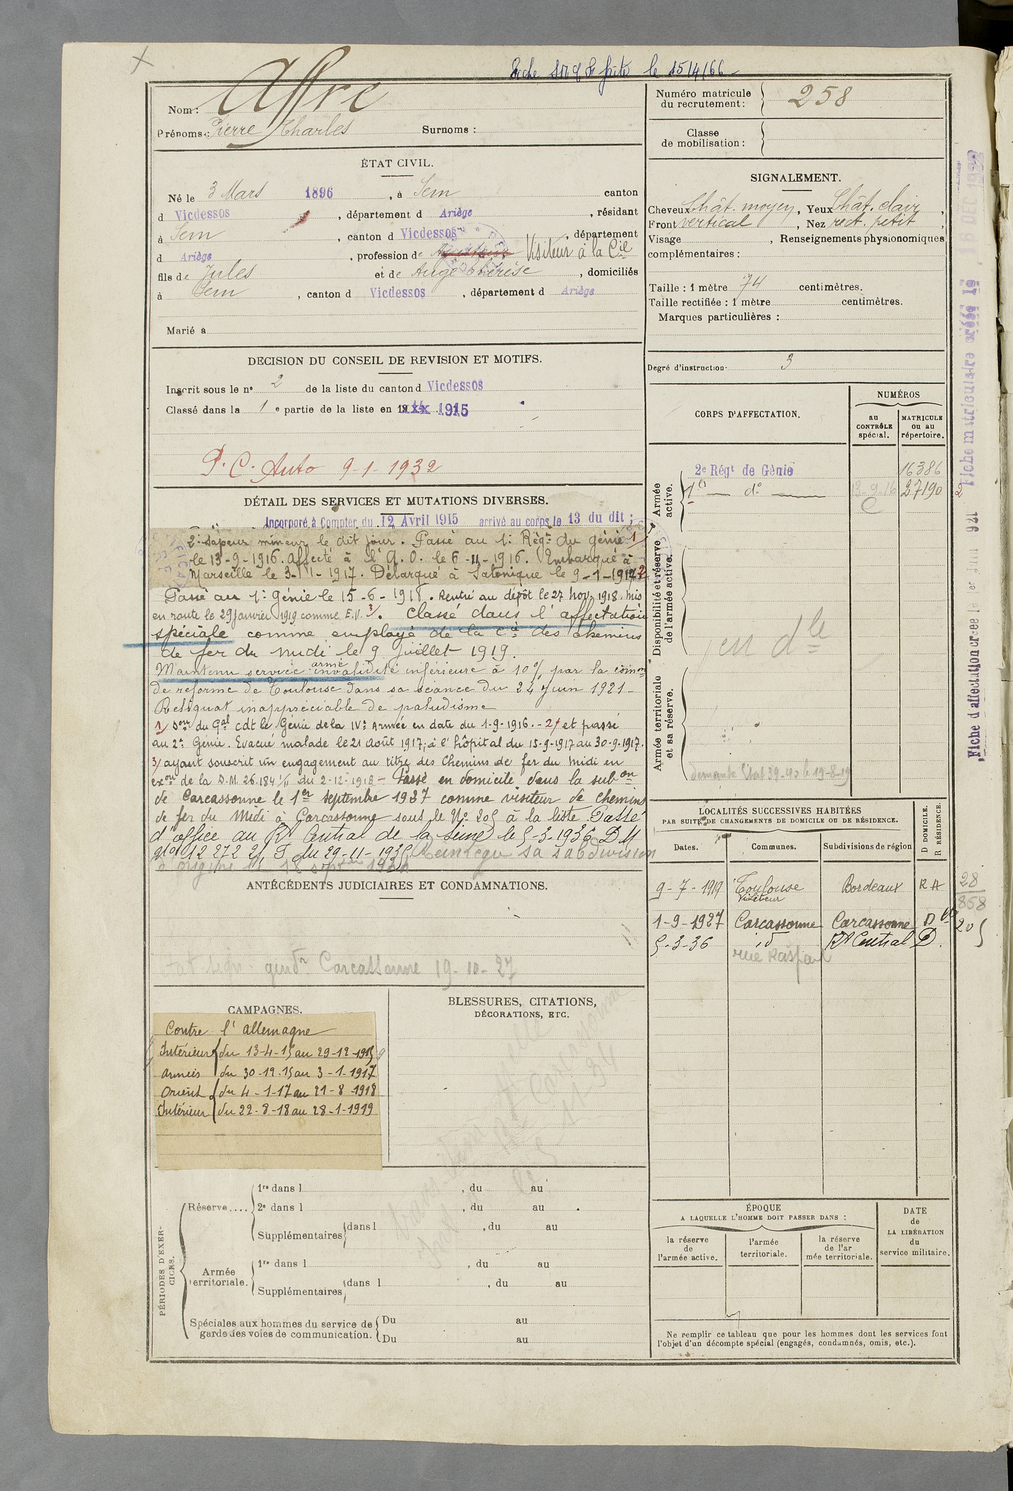 le 15/4/66
Nom : Affre
Prénoms : Pierre Charles Surnoms :
Numéro matricule du recrutement : 258
Classe de mobilisation :
ÉTAT CIVIL.
Né le 3 Mars 1896, à Sem canton
d Vicdessos, département d Ariège, résidant
à Sem, canton d Vicdessos, département
d Ariège, profession de Visiteur à la Cie
fils de Jules et de Ange Thérèse, domiciliés
à Sem, canton d Vicdessos, département d Ariège
Marié à
SIGNALEMENT.
Cheveux Chât. moyen, Yeux Chât. clair,
Front vertical, Nez rect. petit,
Visage, Renseignements physionomiques
complémentaires :
Taille : 1 mètre 74 centimètres.
Taille rectifiée : 1 mètre centimètres.
Marques particulières :
Degré d'instruction 3
DECISION DU CONSEIL DE REVISION ET MOTIFS.
Inscrit sous le n° 2 de la liste du canton d Vicdessos
Classé dans la 1 e partie de la liste en 1915
P. C. Auto 9-1-1932
DÉTAIL DES SERVICES ET MUTATIONS DIVERSES.
Incorporé à Compter du 12 Avril 1915 arrivé au corps le 13 du dit ;
2e sapeur mineur le dit jour. Passé au 1er Régt du génie 1/
le 13-9-1916. Affecté à l'A. O. le 6-11-1916. Embarqué à
Marseille le 3-1-1917. Débarqué à Salonique le 9-1-1917 2
Passé au 1er génie le 15-6-1918. Rentré au dépôt le 27 Nov. 1918. Mis
en route le 29 Janvier 1919 comme E.V. 3/. Classé dans l'affectation
spéciale comme employé de la Cie des chemins
de fer du midi le 9 Juillet 1919.
Maintenu service armé invalidité inférieure à 10% par la comon
de réforme de Toulouse dans sa séance du 24 Juin 1921 -
Reliquat inappréciable de paludisme
1/ Don du Gal cdt le Génie de la IVe Armée en date du 1-9-1916. - 2/ et passé
au 2e Génie. Evacué malade le 21 Août 1917, à l'hôpital du 15-9-1917 au 30-9-1917.
3/ ayant souscrit un engagement au titre des Chemins de fer du midi en
exon de la D.M. 26.184 1/6 du 2-12-1918 - Passé en domicile dans la subon
de Carcassonne le 1er septembre 1927 comme visiteur de chemins
de fer du Midi à Carcassonne sous le N° 205 à la liste. Passé
d'office au Rt Central de la Seine le 5-3-1936 D M
N° 12 272 du 29-11-1935 sa subdivision
ANTÉCÉDENTS JUDICIAIRES ET CONDAMNATIONS.
gendie Carcassonne 19-10-27
CORPS D'AFFECTATION.
NUMÉROS
au CONTRÔLE spécial.
MATRICULE ou au répertoire.
Armée active.
2e Régt de Génie 16386
1er d° 13-9-16 27190 2
Disponibilité et réserve de l'armée active.
en dle
Armée territoriale et sa réserve.
LOCALITÉS SUCCESSIVES HABITÉES
PAR SUITE DE CHANGEMENTS DE DOMICILE OU DE RÉSIDENCE.
Dates. Communes. Subdivisions de région D DOMICILE. R RÉSIDENCE.
9-7-1919 Toulouse Bordeaux R A 28
visiteur 858
1-9-1927 Carcassonne Carcassonne D 205
5-3-36 id Rt Central D.
rue Raspail
CAMPAGNES.
Contre l'allemagne
Intérieur du 13-4-15 au 29-12-1915
Armées du 30-12-15 au 3-1-1917
Orient du 4-1-17 au 21-8-1918
Intérieur du 22-8-18 au 28-1-1919
BLESSURES, CITATIONS,
DÉCORATIONS, ETC.
PÉRIODES D'EXERCICES.
Réserve....
1re dans l , du au
2e dans l , du au
Supplémentaires dans l , du au
Armée territoriale.
1re dans l , du au
Supplémentaires dans l , du au
Spéciales aux hommes du service de garde des voies de communication.
Du au
Du au
ÉPOQUE
A LAQUELLE L'HOMME DOIT PASSER DANS :
la réserve de l'armée active.
l'armée territoriale.
la réserve de l'armée territoriale.
DATE de LA LIBÉRATION du service militaire.
Ne remplir ce tableau que pour les hommes dont les services font
l'objet d'un décompte spécial (engagés, condamnés, omis, etc.).